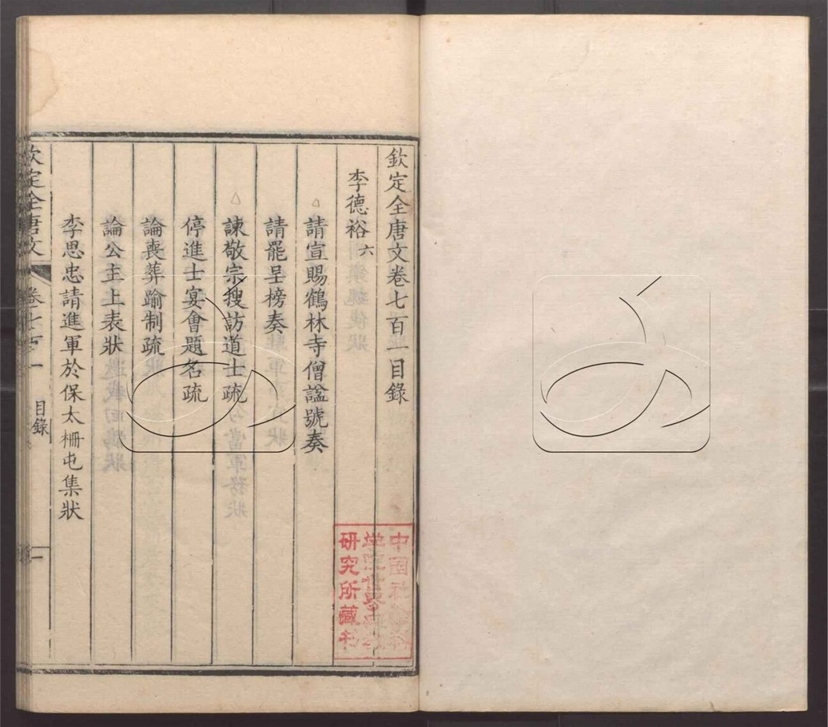 欽定全唐文卷七百一目錄
李德裕六
請宣賜鶴林寺僧諡號奏
請罷呈榜奏
諫敬宗搜訪道士疏
停進士宴會題名疏
論喪葬踰制疏
論公主上表狀
李思忠請進軍於保太柵屯集狀
欽定全唐文 卷七百一 目錄 一
研究所藏書